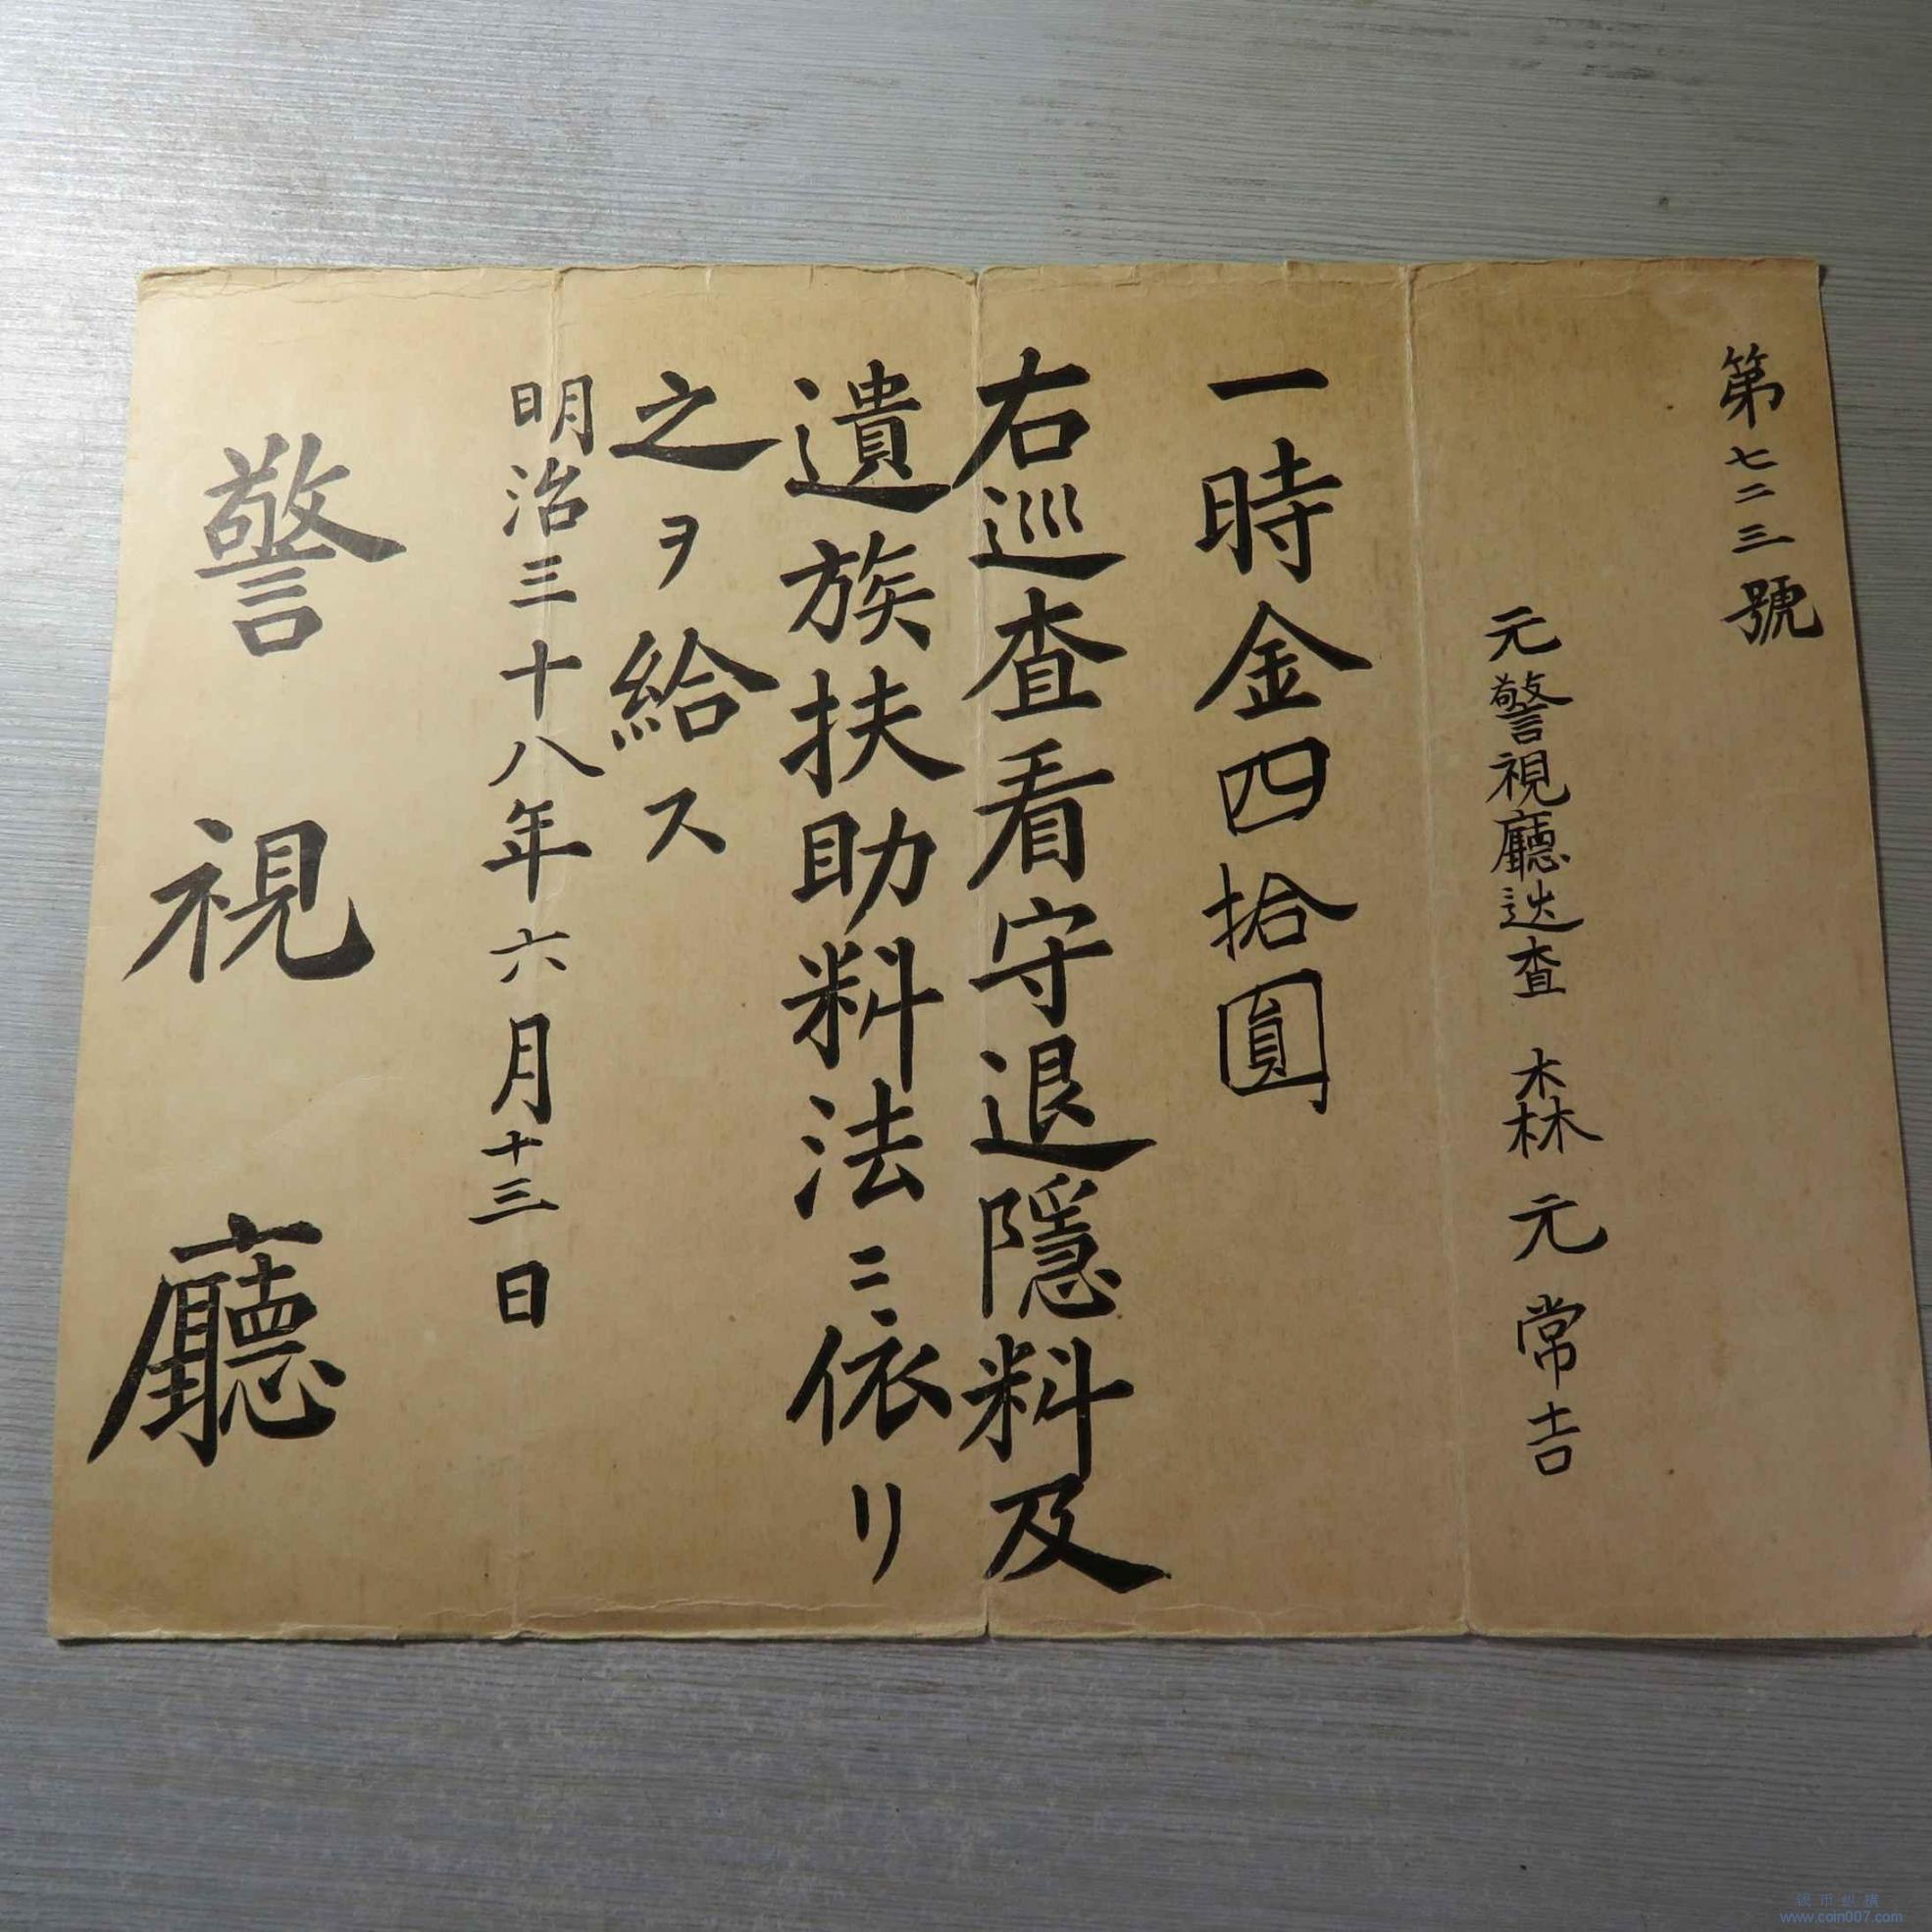 第七二三號
元警視廳巡査 森元常吉
一時金四拾圓
右巡査看守退隱料及
遺族扶助料法ニ依リ
之ヲ給ス
明治三十八年六月十三日
警視廳
钱币纵横
www.coin007.com